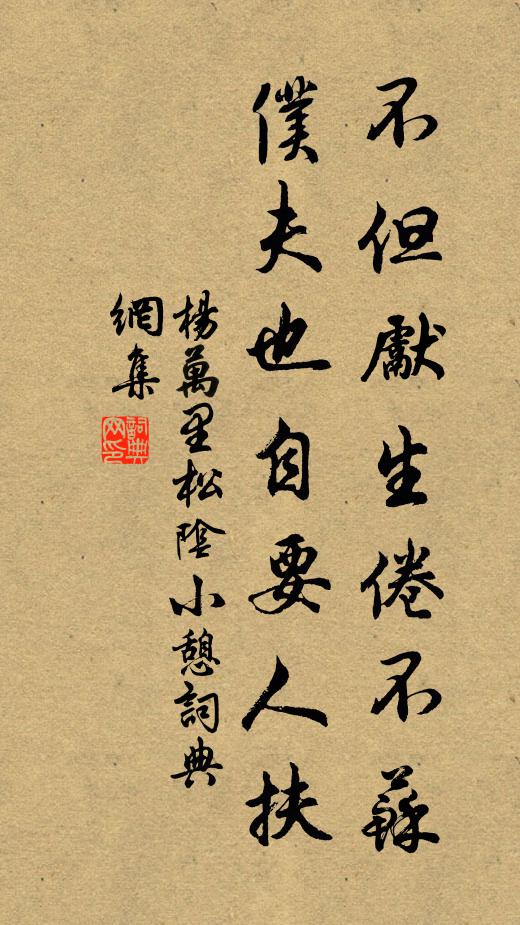 不但獻生倦不蘇
僕夫也自要人扶
楊萬里松陰小憩詞典
網集
詞典
网印